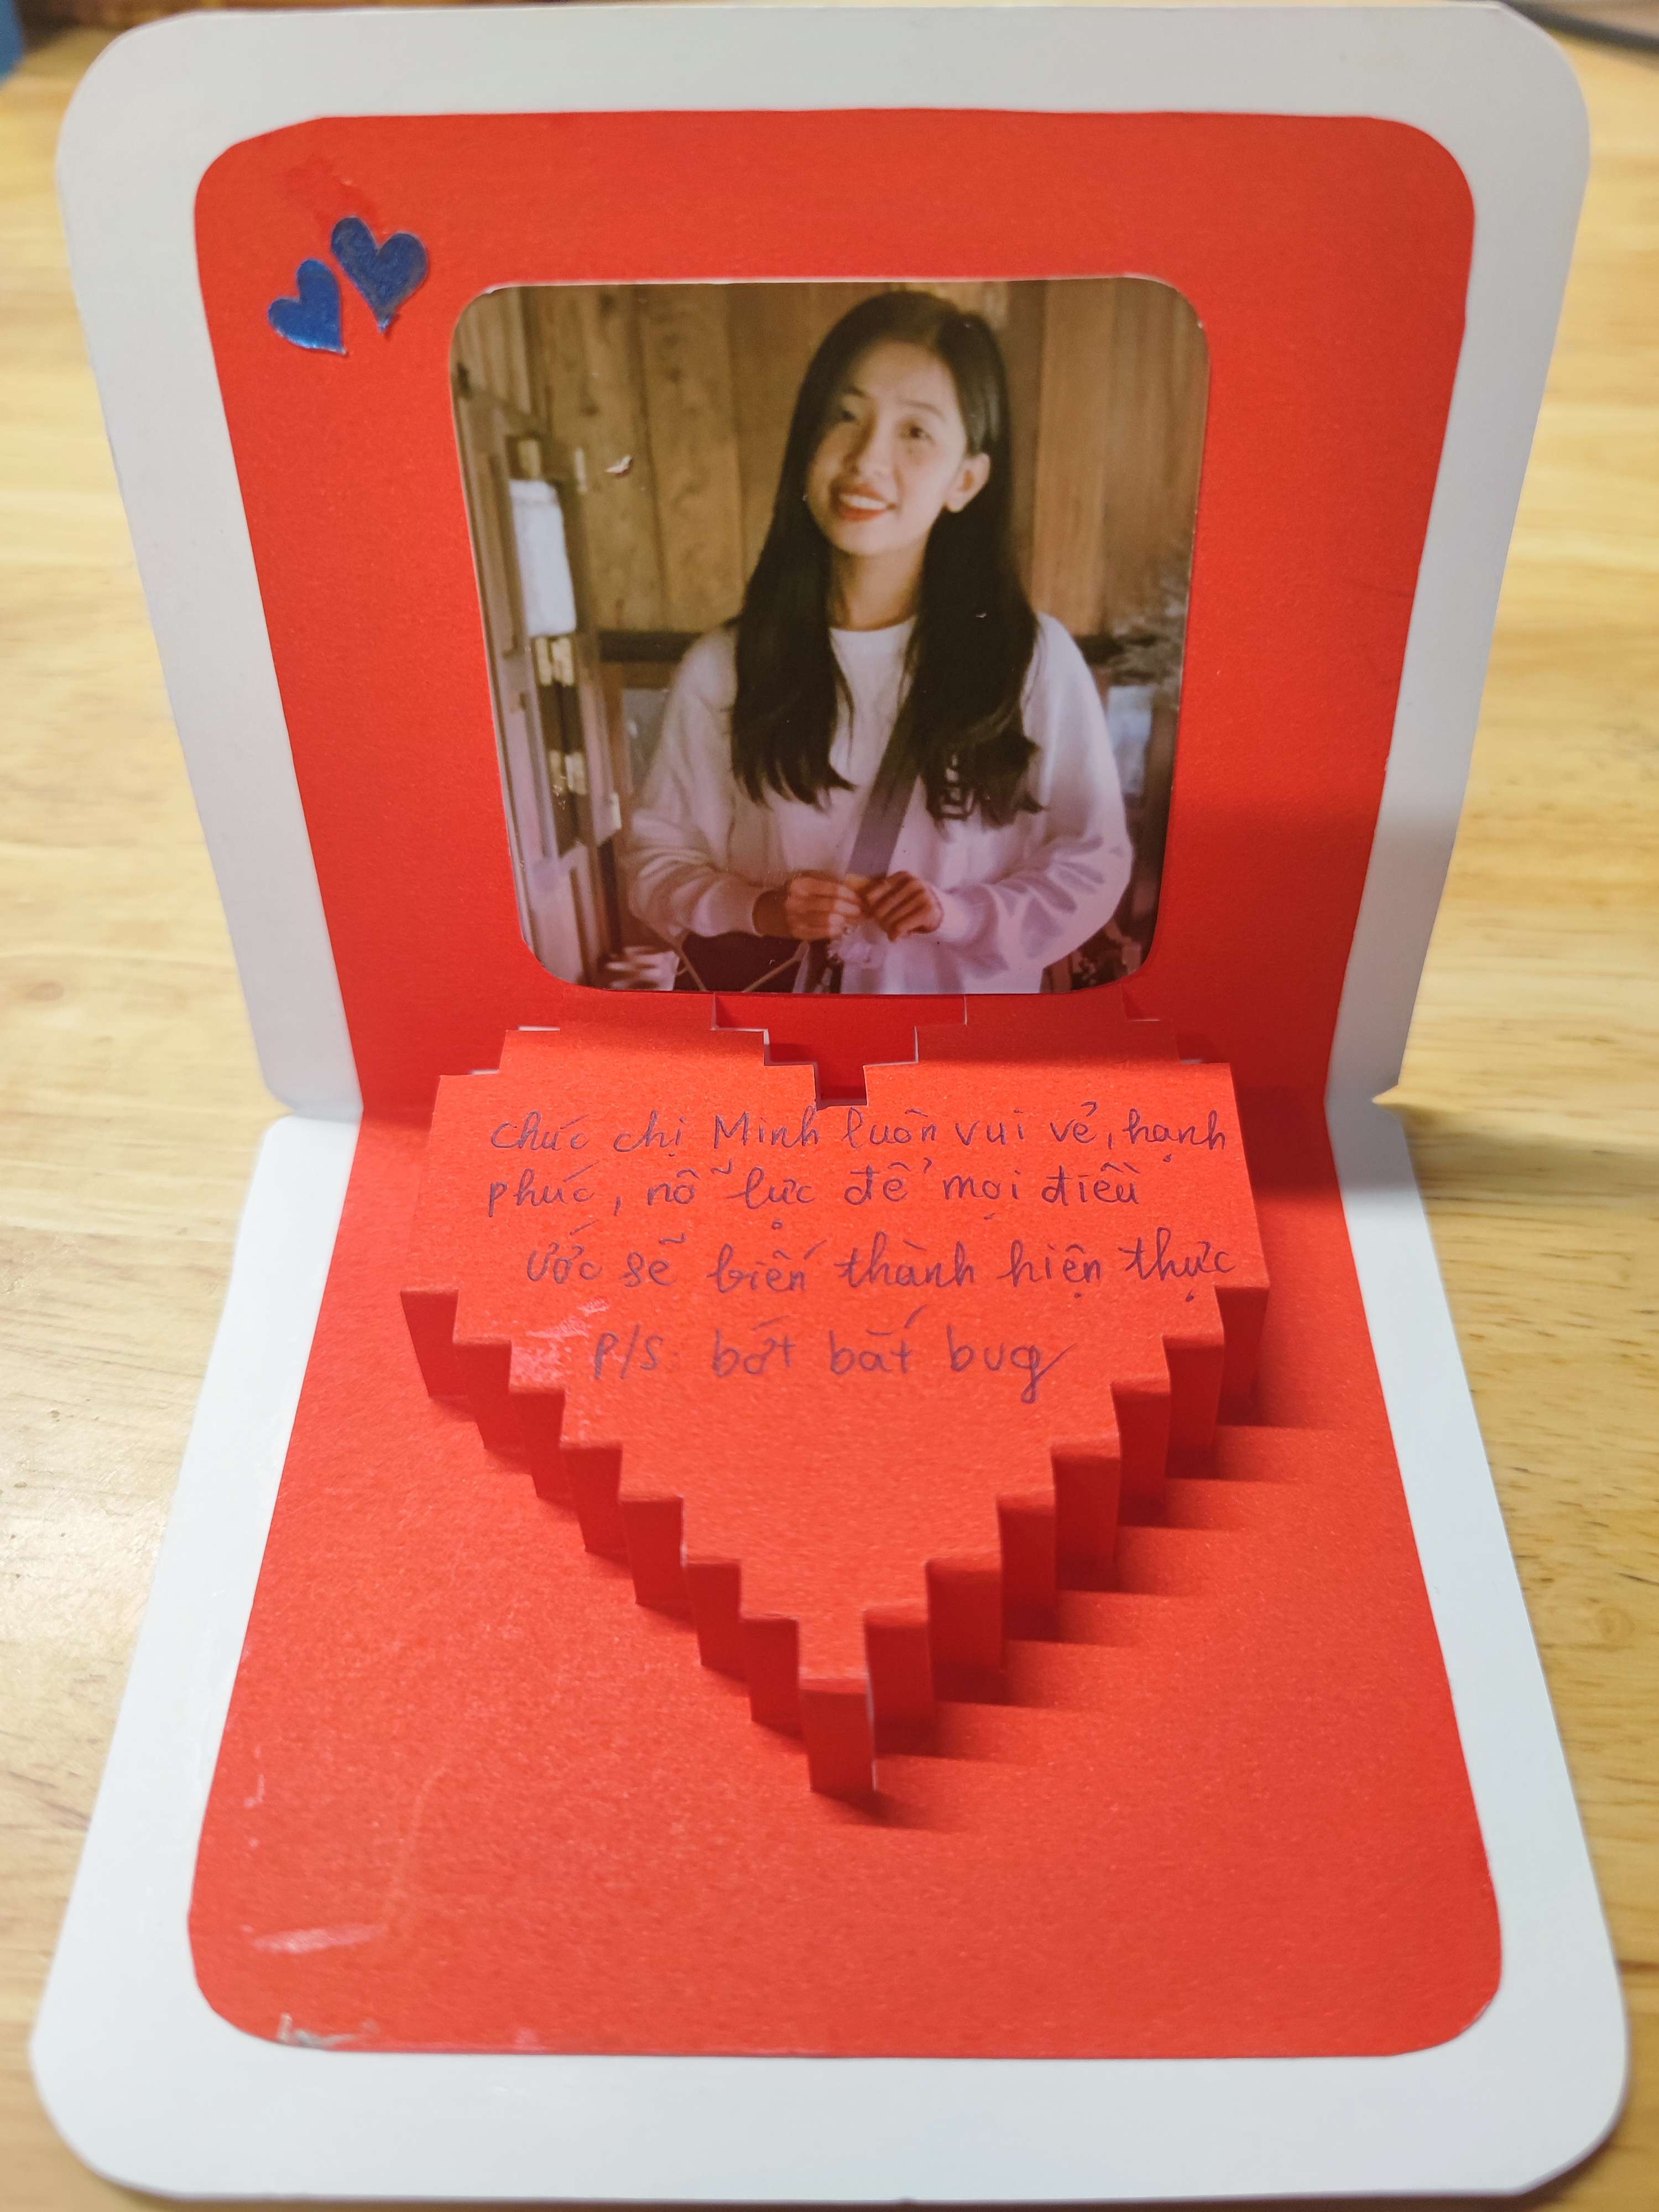 chúc chị Minh luôn vui vẻ, hạnh
phúc, nỗ lực để mọi điều
ước sẽ biến thành hiện thực
P/S: bớt bắt bug